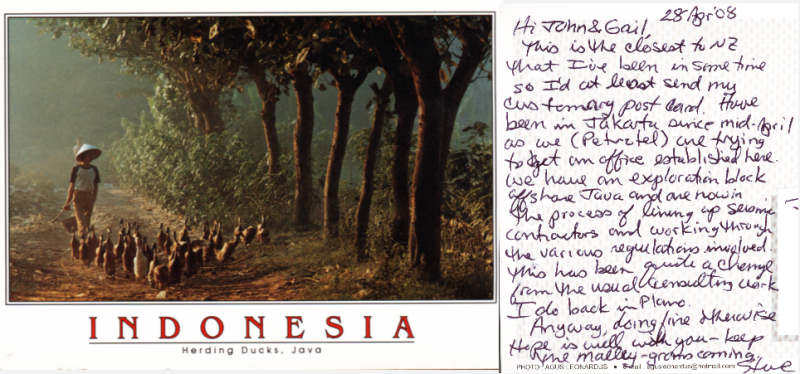 INDONESIA
Herding Ducks, Java
28 Apr '08
Hi John & Gail,
This is the closest to NZ
that I've been in some time
so I'd at least send my
customary post card. Have
been in Jakarta since mid-April
as we (Petrotel) are trying
to get an office established here.
We have an exploration block
offshore Java and are now in
the process of lining up seismic
contractors and working through
the various regulations involved.
This has been quite a change
from the usual consulting work
I do back in Plano.
Anyway, doing fine otherwise
Hope is well with you - keep
the coming,
Steve
PHOTO: AGUS LEONARDUS • Email: agusleonardus@hotmail.com